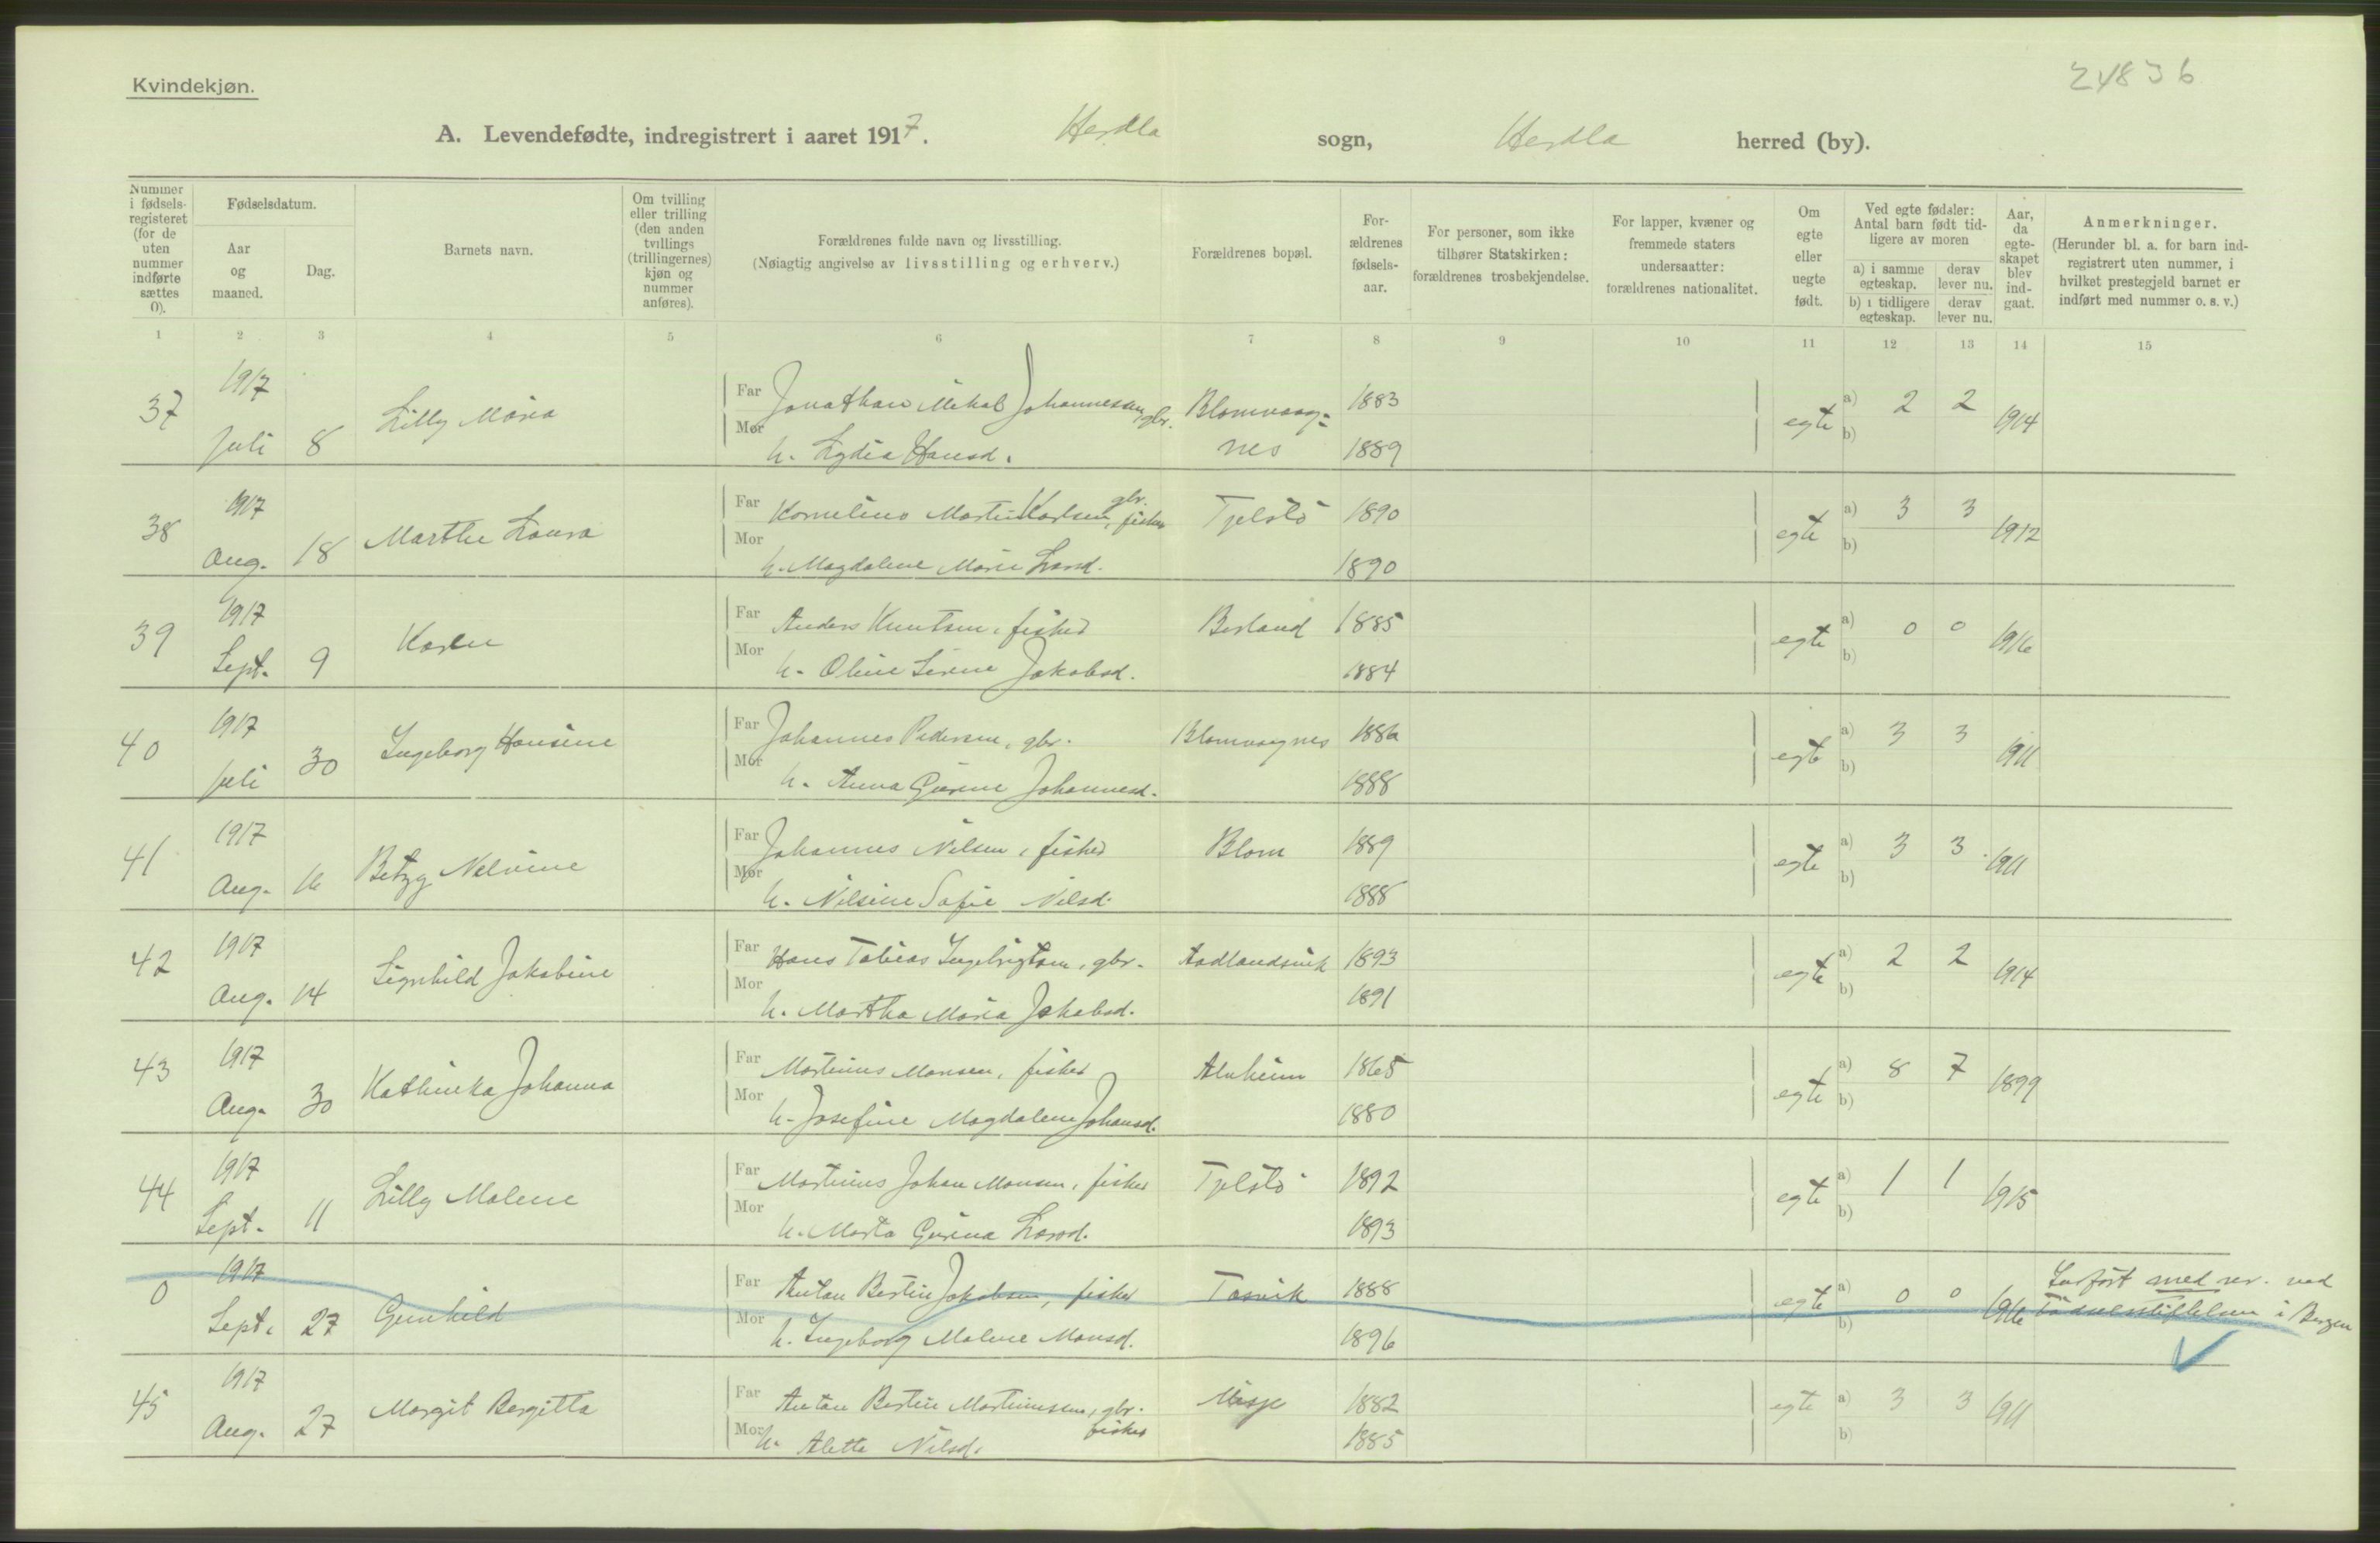 24836
Kvindekjøn.
A. Levendefødte, indregistrert i aaret 1917. Herdla sogn, Herdla herred (by).
Nummer i fødselsregisteret (for de uten nummer indførte sættes 0).
Fødselsdatum.
Aar og maaned.
Dag.
Barnets navn.
Om tvilling eller trilling (den anden tvillings (trillingernes) kjøn og nummer anføres).
Forældrenes fulde navn og livsstilling.
(Nøiagtig angivelse av livsstilling og erhverv.)
Forældrenes bopæl.
Forældrenes fødselsaar.
For personer, som ikke tilhører Statskirken: forældrenes trosbekjendelse.
For lapper, kvæner og fremmede staters undersaatter: forældrenes nationalitet.
Om egte eller uegte født.
Ved egte fødsler: Antal barn født tidligere av moren
a) i samme egteskap.
derav lever nu.
b) i tidligere egteskap.
derav lever nu.
Aar, da egteskapet blev indgaat.
Anmerkninger.
(Herunder bl. a. for barn indregistrert uten nummer, i hvilket prestegjeld barnet er indført med nummer o. s. v.)
1 2 3 4 5 6 7 8 9 10 11 12 13 14 15
37 1917 Juli 8 Lilly Maria
Far Jonathan Mikal Johannessen, gbr. Blomvaagnes 1883 egte a) 2 2 1914
Mor h. Lydia Hansd. 1889 b)
38 1917 Aug. 18 Marthe Laura
Far Kornelius Martin Karlsen, gbr. fisker Tjelstö 1890 egte a) 3 3 1912
Mor h. Magdalene Marie Larsd. 1890 b)
39 1917 Sept. 9 Karen
Far Anders Knutsen, fisker Berland 1885 egte a) 0 0 1916
Mor h. Oline Serine Jakobsd. 1884 b)
40 1917 Juli 30 Ingeborg Hansine
Far Johannes Pedersen, gbr. Blomvaagnes 1886 egte a) 3 3 1911
Mor h. Anna Gurine Johannesd. 1888 b)
41 1917 Aug. 16 Betzy Nelvine
Far Johannes Nilsen, fisker Blom 1889 egte a) 3 3 1911
Mor h. Nilsine Sofie Nilsd. 1888 b)
42 1917 Aug. 14 Signhild Jakobine
Far Hans Tobias Ingebrigtsen, gbr. Aadlandsvik 1893 egte a) 2 2 1914
Mor h. Martha Maria Jakobsd. 1891 b)
43 1917 Aug. 30 Kathinka Johanna
Far Martinus Monsen, fisker Alvheim 1865 egte a) 8 7 1899
Mor h. Josefine Magdalene Johansd. 1880 b)
44 1917 Sept. 11 Lilly Malene
Far Martinus Johan Monsen, fisker Tjelstö 1892 egte a) 1 1 1915
Mor h. Marta Gurina Larsd. 1893 b)
0 1917 Sept. 27 Gunhild
Far Anton Bertin Jakobsen, fisker Tosvik 1888 egte a) 0 0 1916 Indfört med nr. ved Födselsstiftelsen i Bergen
Mor h. Ingeborg Malene Monsd. 1896 b)
45 1917 Aug. 27 Margit Bergitta
Far Anton Bertin Martinussen, gbr. fisker Misje 1882 egte a) 3 3 1911
Mor h. Alette Nilsd. 1885 b)